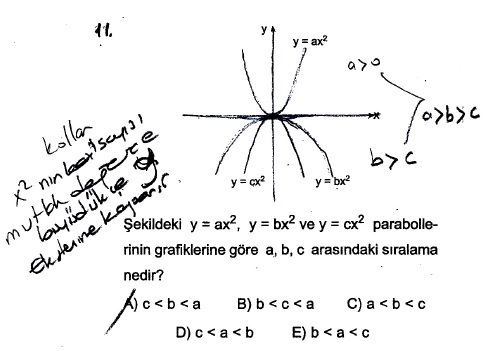 11.
y
y = ax²
x
y = cx²
y = bx²
a>0
a>b>c
b>c
kollar
x² nin katsayısı
mutlak değerce
büyüdükçe y
Şekildeki y = ax², y = bx² ve y = cx² parabolle-
rinin grafiklerine göre a, b, c arasındaki sıralama
nedir?
A) c < b < a B) b < c < a C) a < b < c
D) c < a < b E) b < a < c